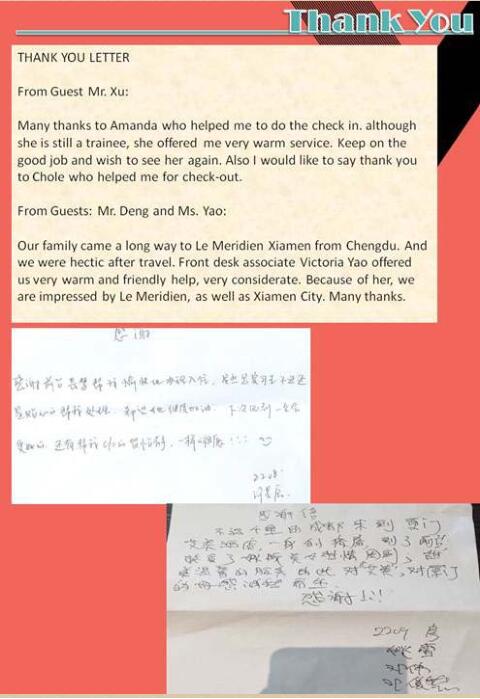 Thank You
THANK YOU LETTER
From Guest Mr. Xu:
Many thanks to Amanda who helped me to do the check in. although
she is still a trainee, she offered me very warm service. Keep on the
good job and wish to see her again. Also I would like to say thank you
to Chole who helped me for check-out.
From Guests: Mr. Deng and Ms. Yao:
Our family came a long way to Le Meridien Xiamen from Chengdu. And
we were hectic after travel. Front desk associate Victoria Yao offered
us very warm and friendly help, very considerate. Because of her, we
are impressed by Le Meridien, as well as Xiamen City. Many thanks.
感谢
感谢前台 帮我愉快地办理入住，虽然是实习生不过还
是贴心的帮我处理. 继续加油. 下次 一定会
还有帮我c/o的 一样 !!!
2208
感谢信
不远千里由成都来到厦门
艾美酒店 一身的疲惫 到了前台
接受了 女士热情周到、
温馨的服务由此对"艾美",对厦门
的 感油然 而生
感谢!!!
2209房